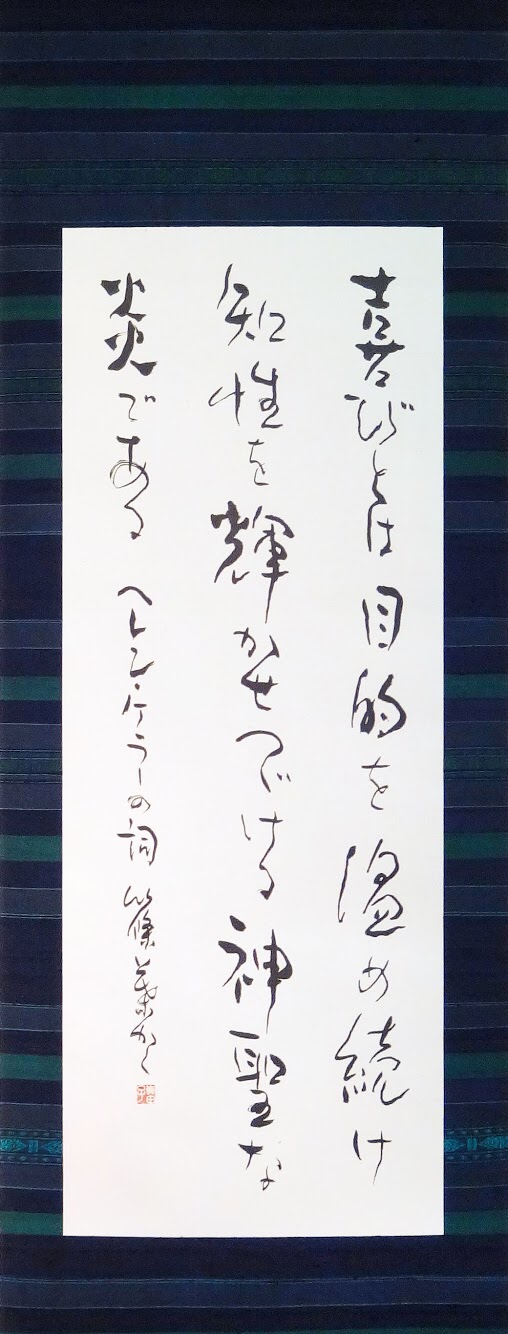 喜びとは目的を温め続け
知性を輝かせつづける神聖な
炎である ヘレン・ケラーの詞 篠葉かく